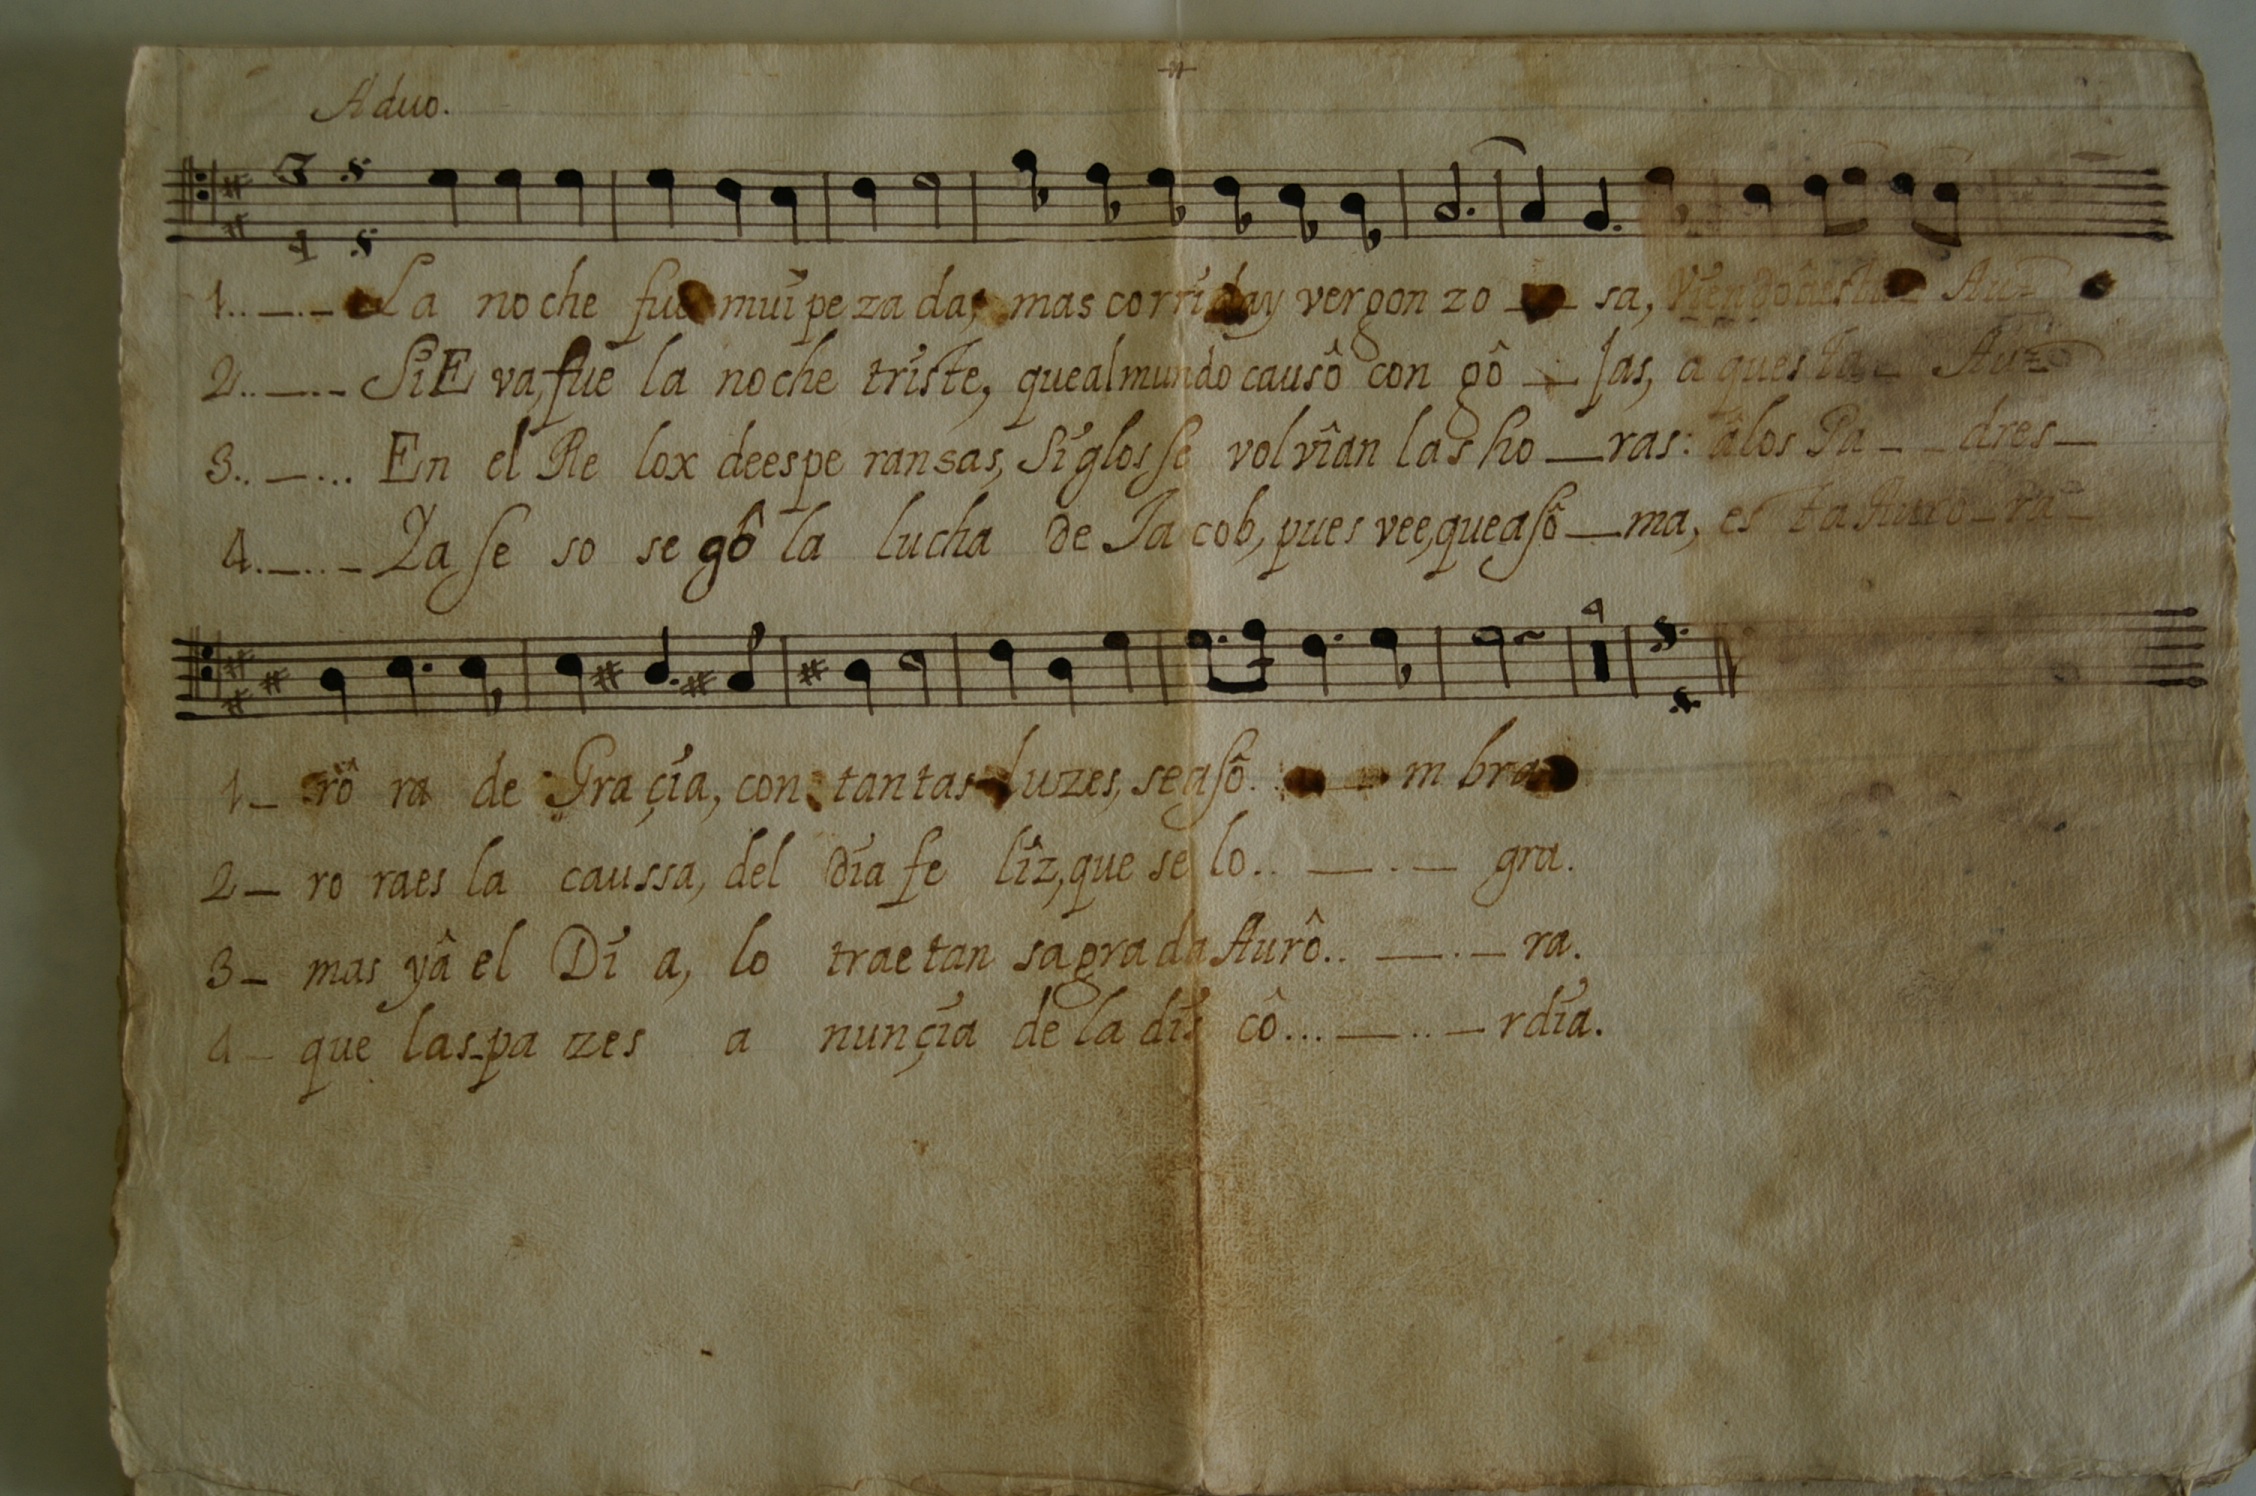 A duo.
1.. _._._ La no che fue mui pe za da, mas cor ri da y ver gon zo _ _ sa, viendo â esta _ Au=
2.. _.._ Si E va, fue la no che triste, que al mundo causô con gô _ _ jas, a ques ta _ Au=
3.. _... En el Re lox de espe ransas, Siglos se vol vîan las ho _ ras: â los Pa _ _ dres _
4.._.._ Ya se so se gô la lucha de Ja cob, pues vee, que asô _ ma, es ta Auro _ ra _
1_ rô ra de Graçia, con tan tas luzes, se asô. . _ _ m bra
2_ ro ra es la caussa, del dia fe lîz, que se lo.. _._ gra.
3_ mas yâ el Di a, lo trae tan sagrada Aurô.. _._ ra.
4_ que las pa zes a nunçia de la dis cô... _.._ rdia.